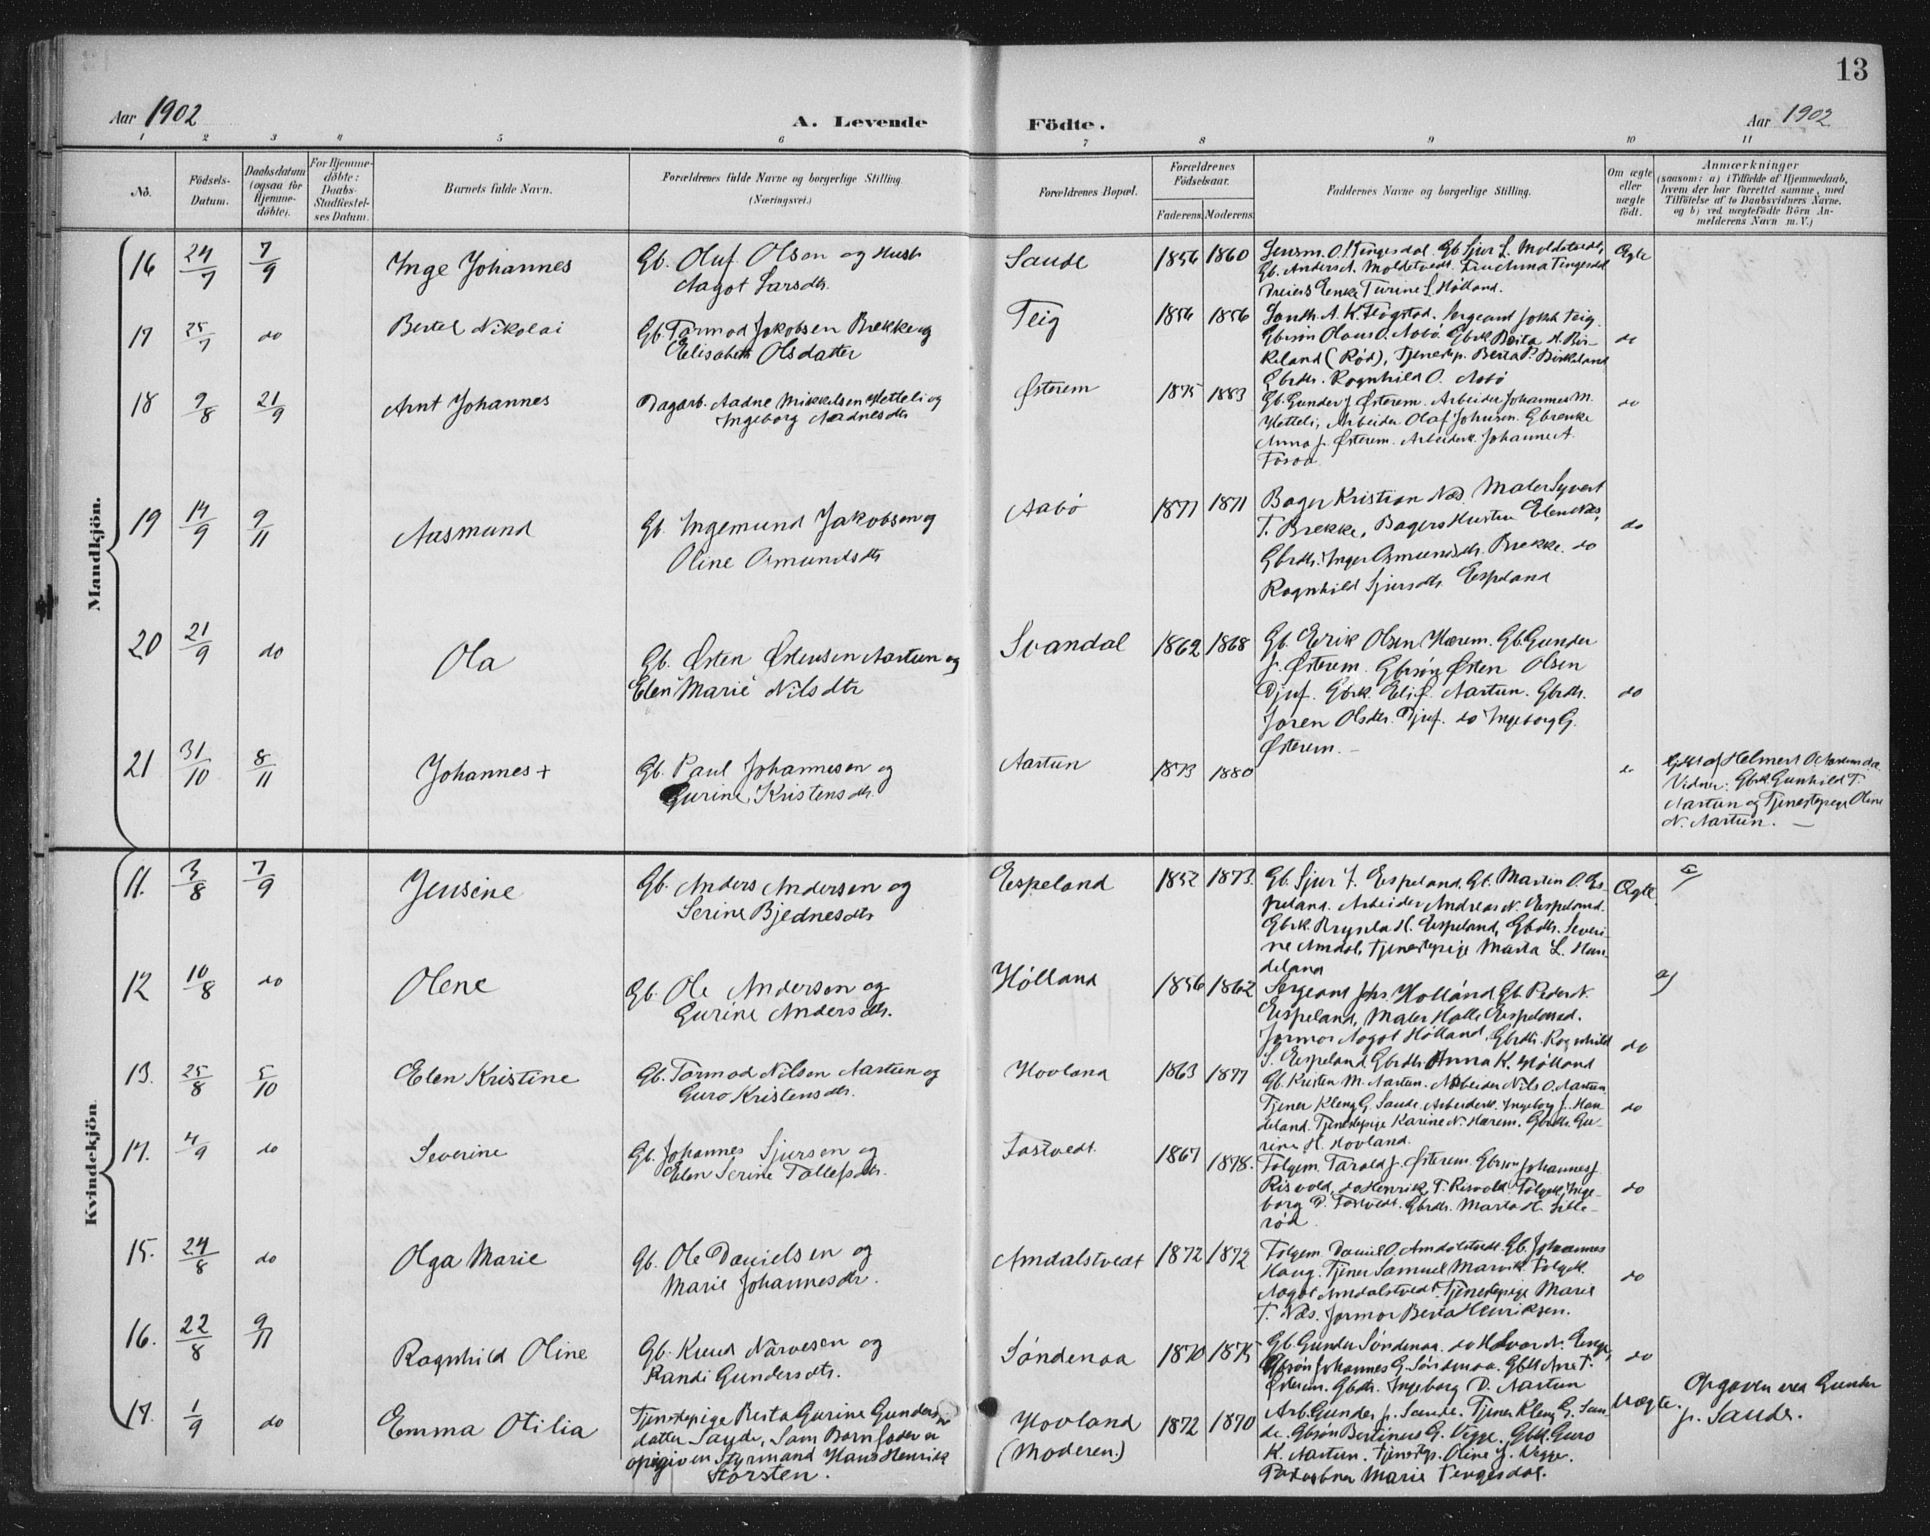 13
Aar 1902
A. Levende Födte.
Aar 1902
1 2 3 4 5 6 7 8 9 10 11
No.
Födsels-
Datum.
Daabsdatum
(ogsaa for
Hjemme-
döbte).
For Hjemme-
döbte:
Daabs-
Stadfæstel-
ses Datum.
Barnets fulde Navn.
Forældrenes fulde Navne og borgerlige Stilling.
(Næringsvei.)
Forældrenes Bopæl.
Forældrenes
Födselsaar.
Faderens.
Moderens.
Faddernes Navne og borgerlige Stilling.
Om ægte
eller
uægte
födt.
Anmærkninger
(saasom: a) i Tilfælde af Hjemmedaab,
hvem der har forrettet samme, med
Tilföielse af to Daabsvidners Navne,
og b) ved uægtefödte Börn An-
melderens Navn m. V.)
Mandkjön.
16 24/7 7/9 Inge Johannes
Gb. Oluf Olsen og Hustr
Aagot Larsdtr.
Saude 1856 1860
Lensm. O. Tengesdal. Gb. Sjur L. Moldetvedt,
Gb. Anders A. Moldetvedt. Fru Anna Tengesdal
Enke Turine L. Hølland.
Ægte
17 25/7 do Bertel Nikolai
Gb. Tormod Jakobsen Brekke og
Elisabeth Olsdatter
Teig 1856 1856
A. K. Fløgstad. Sergeant Teig.
Gbrsøn Olaus O. Aabø. Gbrk Berta H. Bir-
keland (Rød), Tjenestep. Berta P. Birkeland
Gbrdtr. Ragnhild O. Aabø
do
18 9/8 21/9 Arnt Johannes
Dagarb. Aadne Mikkelsen Hetteli og
Ingeborg Aadnesdtr
Østerem 1875 1883
Gb. Gunder J. Østerem. Arbeider Johannes M.
Hetteli, Arbeider Olaf Johnsen. Gbrenke
Anna J. Østerem. Arbeiderk. Johanne A.
do
19 14/9 9/11 Aasmund
Gb. Ingemund Jakobsen og
Oline Osmundsdtr
Aabø 1877 1871
Bager Kristian Næs. Maler Syvert
T. Brekke, Bagers Hustru Elen Næs,
Gbrdtr. Inger Osmundsdtr. Brekke. do
Ragnhild Sjursdtr. Espeland
do
20 21/9 do Ola
Gb. Østen Østensen Aartun og
Elen Marie Nilsdtr
Svandal 1862 1868
Gb. Erik Olsen Hærem. Gb. Gunder
J. Østerem. Gbrsøn Østen Olsen
Djuf. Gbrk. Eli Aartun. Gbrdtr.
Joren Olsdtr. Djuf. do Ingeborg G.
Østerem. —
do
21 31/10 8/11 Johannes +
Gb. Paul Johannesen og
Gurine Kristensdtr.
Aartun 1873 1880
do
af Helmert O. Aartun
Vidner: Gbrk. Gunhild T.
Aartun og Tjenestepige Oline
N. Aartun. —
Kvindekjön.
11. 3/8 7/9 Jensine
Gb. Anders Andersen og
Serine Bjednesdtr
Espeland 1852 1873.
Gb. Sjur J. Espeland. Gb. Martin O. Es-
peland. Arbeider Andreas N. Espeland.
Gbrk. Brynla H. Espeland, Gbrdtr. Severi-
ne Amdal, Tjenestepige Marta L. Han-
deland
Ægte.
a)
12 10/8 do Olene
Gb. Ole Andersen og
Gurine Andersdtr.
Hølland 1856 1862
Sergeant Johs. Hølland. Gb. Peder N.
Espeland, Maler Halle Espeland.
Jormor Aagot Hølland, Gbrdtr. Ragnhild
S. Espeland Gbrdtr. Anna K. Hølland
do
a)
13. 25/8 5/10 Elen Kristine
Gb. Tormod Nilsen Aartun og
Guro Kristensdtr.
Hovland 1863 1877
Gb. Kristen M. Aartun. Arbeider Nils O. Aartun
Tjener Kleng G. Saude. Arbeiderk. Ingeborg J. Han
deland. Tjenestepige Karine N. Hærem. Gbrdtr. Gu-
rine H. Hovland.
do
14. 4/9 do Severine
Gb. Johannes Sjursen og
Elen Serine Tollefsdtr.
Fostvedt 1867 1878.
Folgem. Tarald J. Østerem. Gbrsøn Johannes J.
Risvold, do Henrik T. Risvold. Folgek. Inge-
borg P. Fostvedt. Gbrdtr. Marta H. Lille-
rød
do
15. 24/8 do Olga Marie
Gb. Ole Danielsen og
Marie Johannesdtr.
Amdalstvedt 1872 1872
Folgem. Daniel O. Amdalstvedt. Gb. Johannes
Haug. Tjener Samuel Marvik. Folgek.
Aagot Amdalstvedt. Tjenestepige Marie
T. Næs. Jormor Berta Henriksen.
do
16. 22/8 9/11 Ragnhild Oline
Gb. Knud Narvesen og
Randi Gundersdtr.
Søndenaa 1870 1875
Gb. Gunder Søndenaa. do Halvor N. Enge,
Gbrsøn Johannes G. Søndenaa. Gbrk Ane T.
Østerem. Gbrdtr. Ingeborg D. Aartun
do
17. 1/9 do Emma Otilia
Tjenestepige Berta Gurine Gunders-
datter Saude, Som Barnefader er
opgiven Styrmand Hans Henrik
Storsten.
Hovland
(Moderen.)
1872 1870
Arb. Gunder J. Saude. Tjener Kleng G. Sau-
de. Gbrsøn Bertinus G. Vigge. Gbrk. Guro
K. Aartun. Tjenestep. Oline J. Vigge.
Marie Tengesdal.
Uægte.
Opgaven ved Gunder
J. Saude.